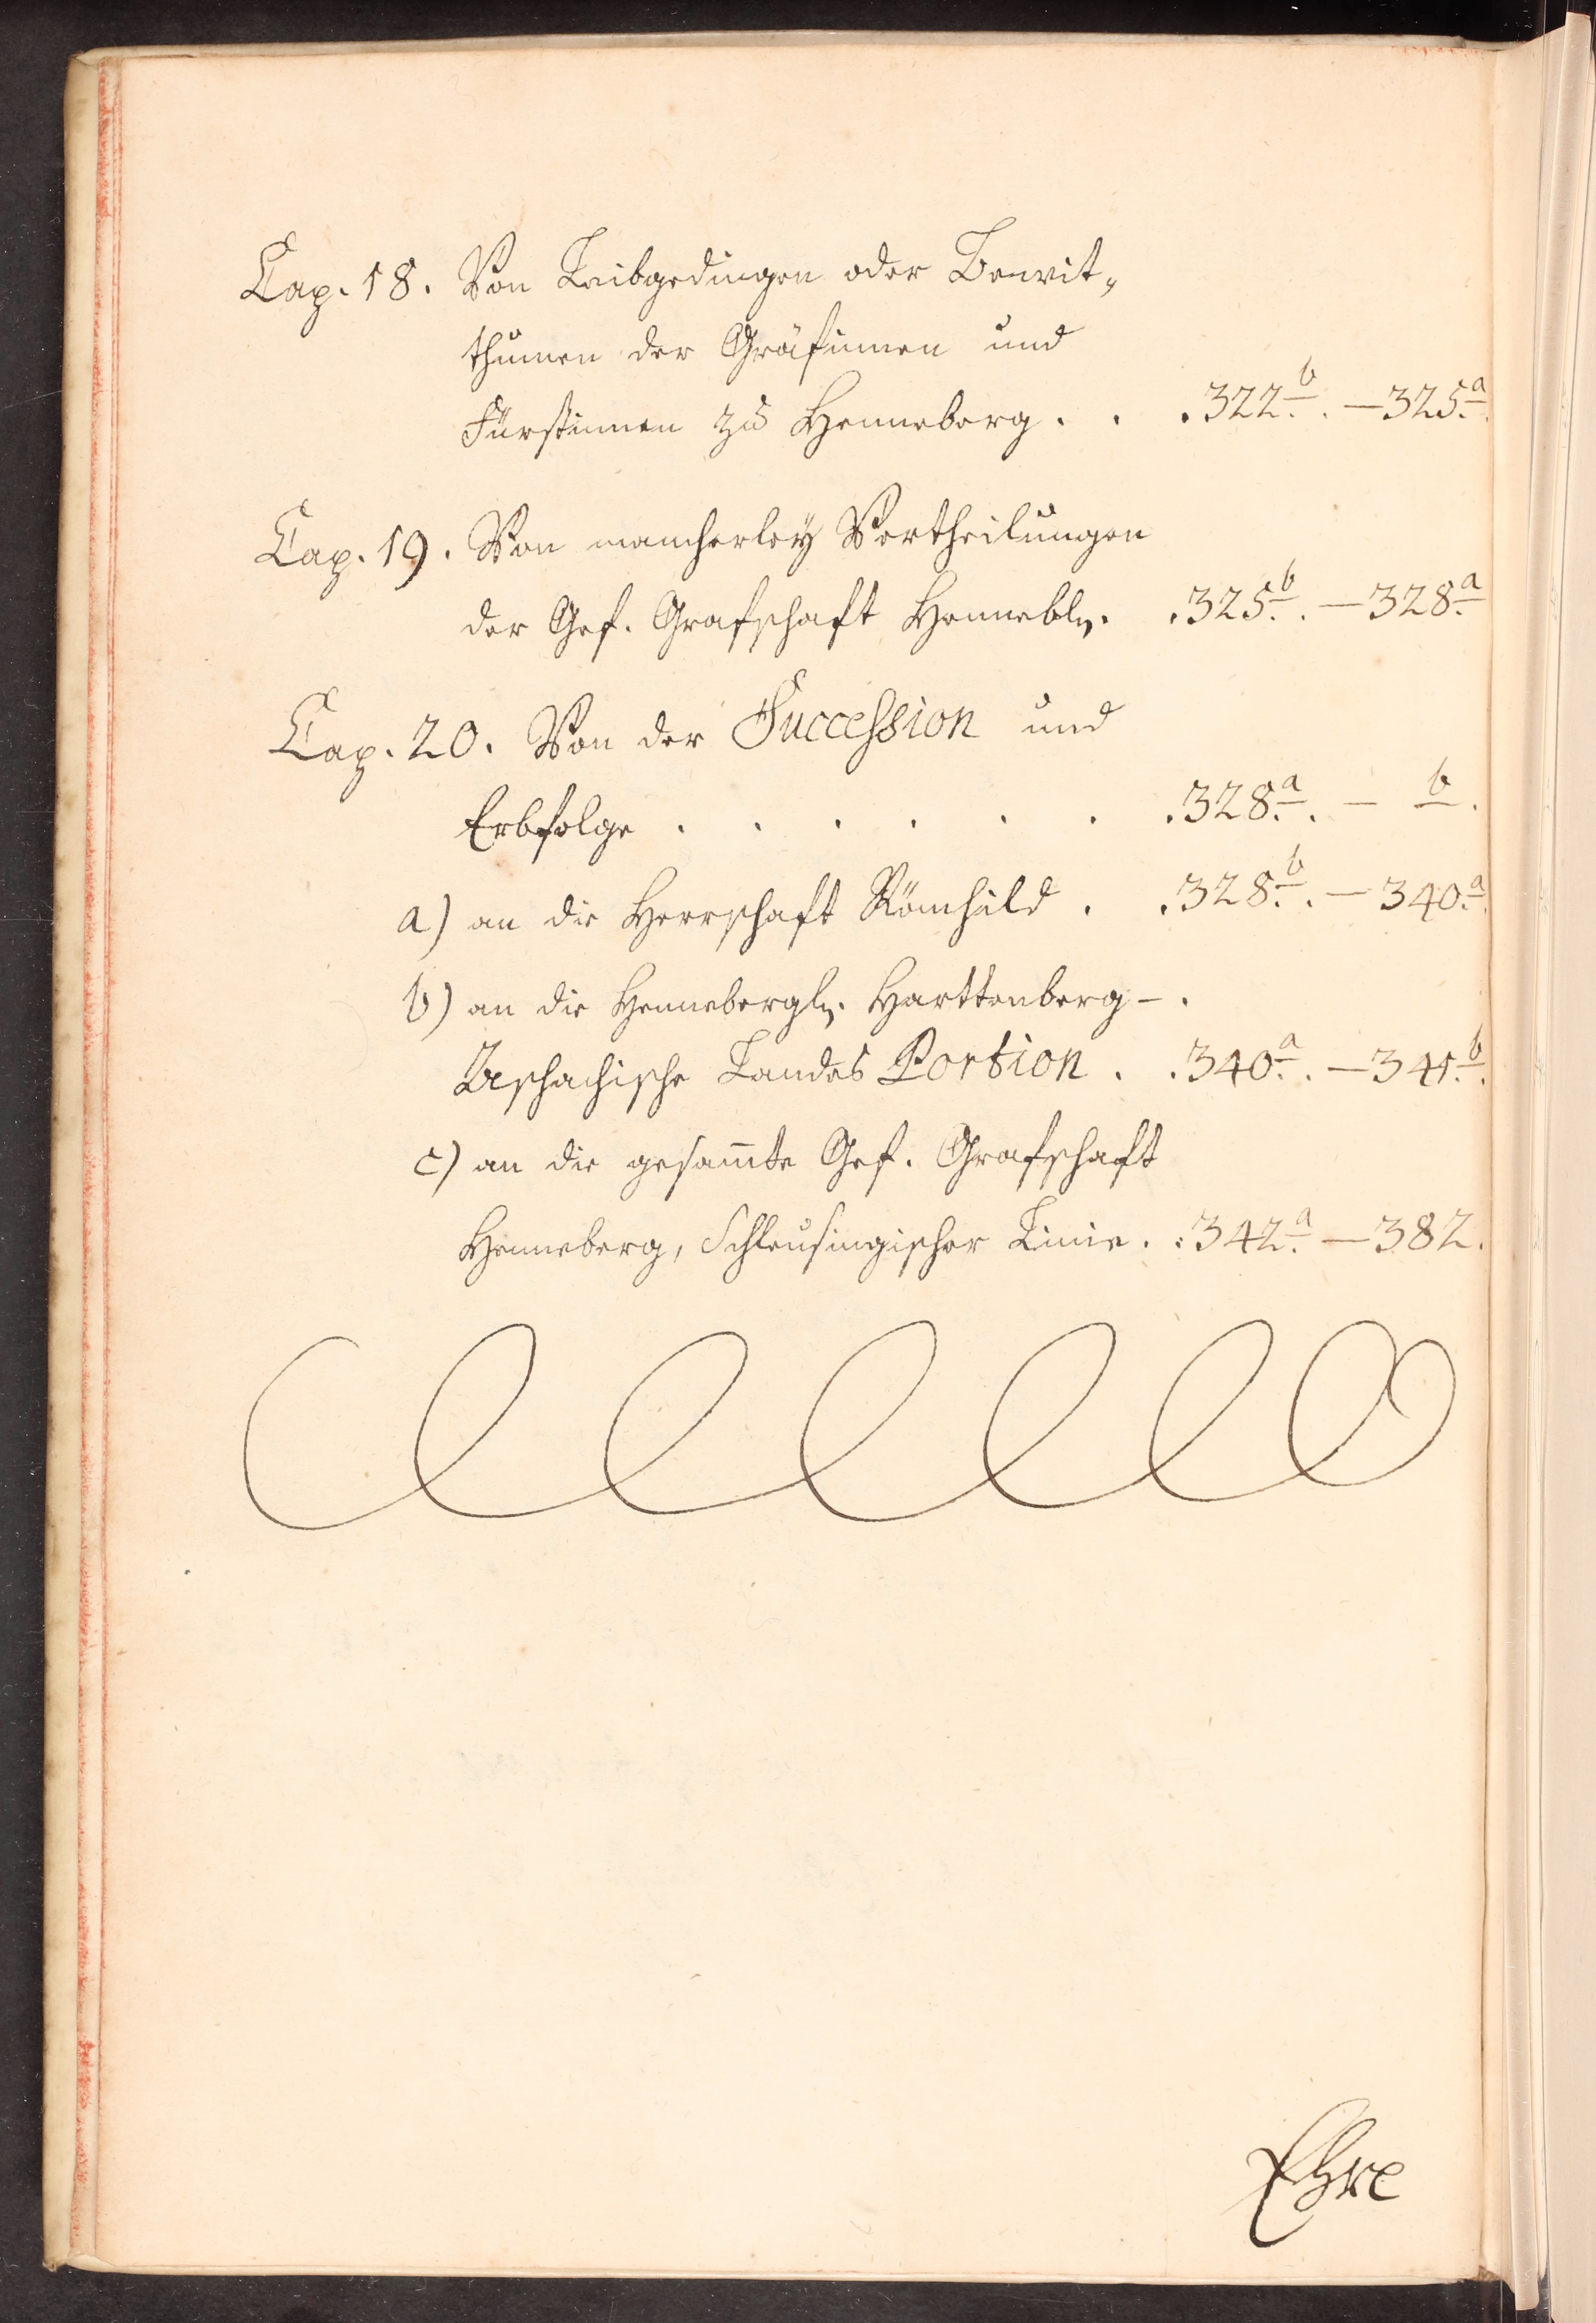 Cap. 18. Von Leibgedingen oder Bewit„
thumen der Gräfinnen und
Fürstinnen zu Henneberg. . . 322.b. — 325.a.
Cap. 19. Von mancherley Vertheilungen
der Gef. Grafschaft Hennebl. . 325.b. — 328.a
Cap. 20. Von der Succession und
Erbfolge . . . . . . . 328.a. — b.
a) an die Herrschaft Römhild . . 328.b. — 340.a.
b) an die Hennebergl. Harttenberg- .
Aschachische Landes Portion . . 340.a. — 341.b.
c) an die gesam̄te Gef. Grafschaft
Henneberg, Schleusingischer Linie. : 342.a — 382.
Ehre